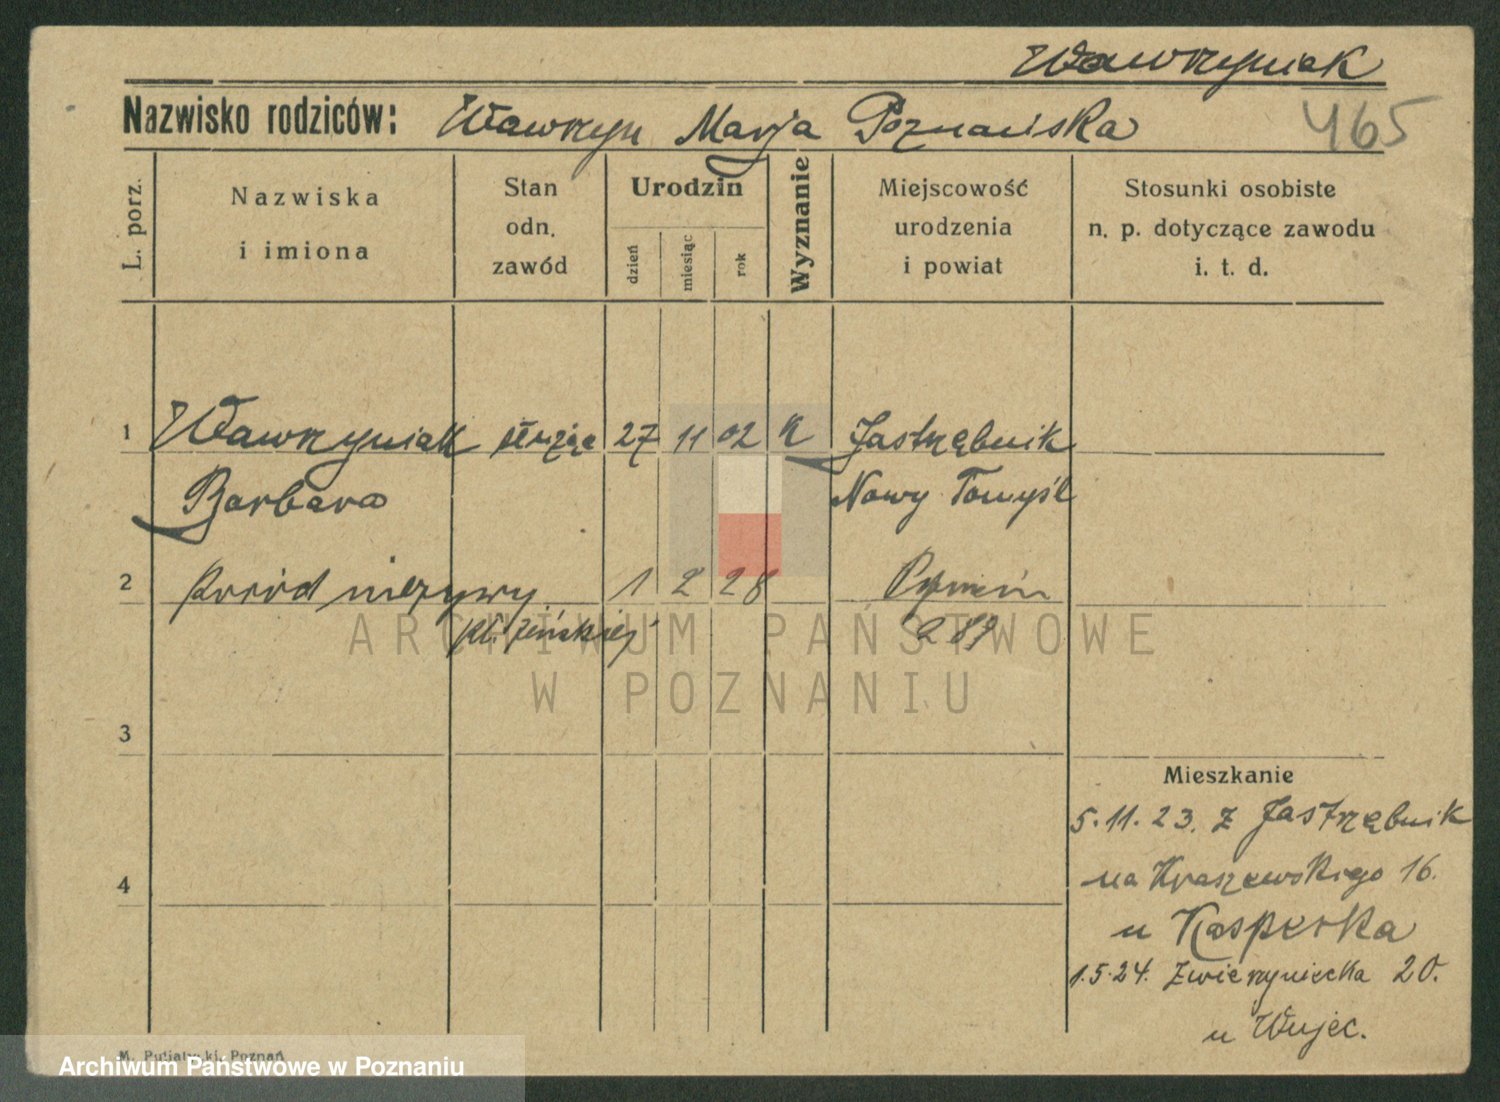 Wawrzyniak
Nazwisko rodziców: Wawrzyn Marja Poznańska 465
L. porz.
Nazwiska
i imiona
Stan
odn.
zawód
Urodzin
dzień
miesiąc
rok
Wyznanie
Miejscowość
urodzenia
i powiat
Stosunki osobiste
n. p. dotyczące zawodu
i. t. d.
1 Wawrzyniak służąc 27 11 02 K Jastrzębnik
Barbara Nowy Tomyśl
2 Poród nieżywy 1 2 28 Poznań
pł. żeńskiej 289
ARCHIWUM PAŃSTWOWE
W POZNANIU
3
Mieszkanie
5.11.23. z Jastrzębnik
4
na Kraszewskiego 16.
u Kasperka
1.5.24. Zwierzyniecka 20.
u Wujec.
M. Putiatycki, Poznań
Archiwum Państwowe w Poznaniu